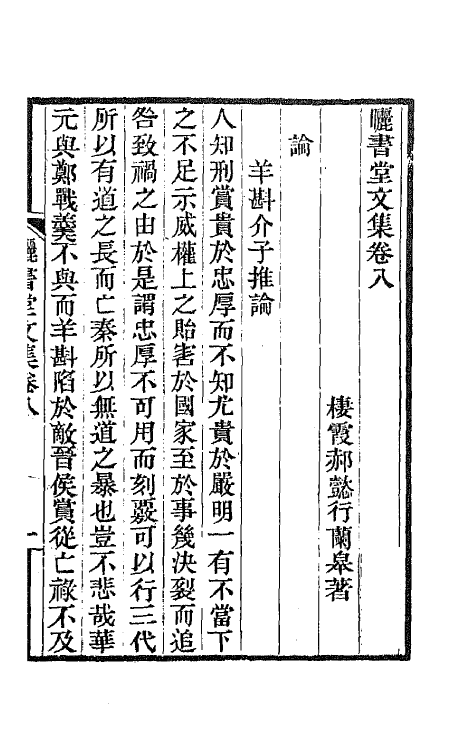 曬書堂文集卷八
棲霞郝懿行蘭皋著
論
羊斟介子推論
人知刑賞貴於忠厚而不知尤貴於嚴明一有不當下
之不足示威權上之貽害於國家至於事幾決裂而追
咎致禍之由於是謂忠厚不可用而刻覈可以行三代
所以有道之長而亡秦所以無道之暴也豈不悲哉華
元與鄭戰羹不與而羊斟陷於敵晉侯賞從亡祿不及
曬書堂文集卷八
一